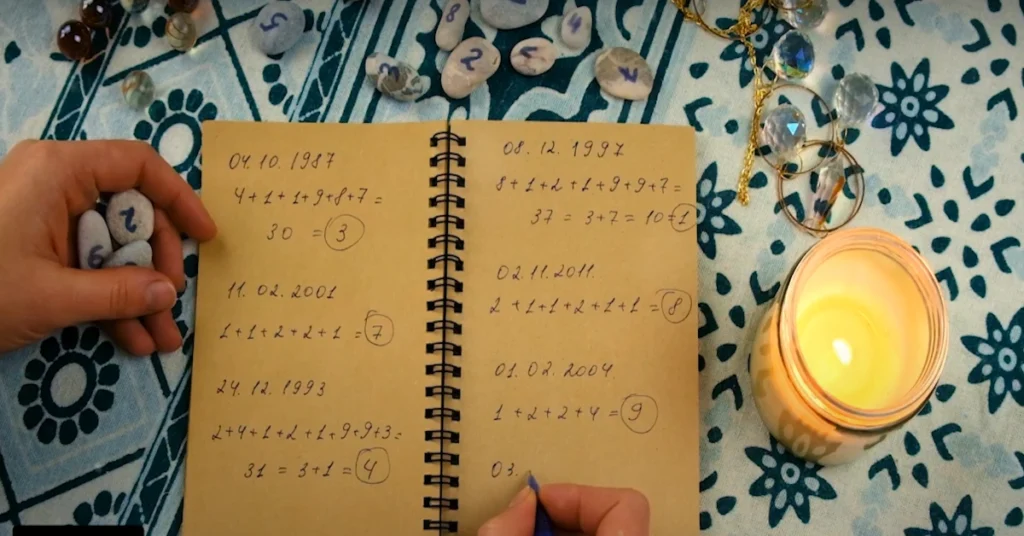 04.10.1987
4+1+1+9+8+7=
30 = 3
11.02.2001
1+1+2+2+1 = 7
24.12.1993
2+4+1+2+1+9+9+3=
31 = 3+1 = 4
08.12.1997
8+1+2+1+9+9+7=
37 = 3+7 = 10=1
02.11.2011.
2+1+1+2+1+1 = 8
01.02.2004.
1+2+2+4 = 9
03.
5
8
4
2
2
6